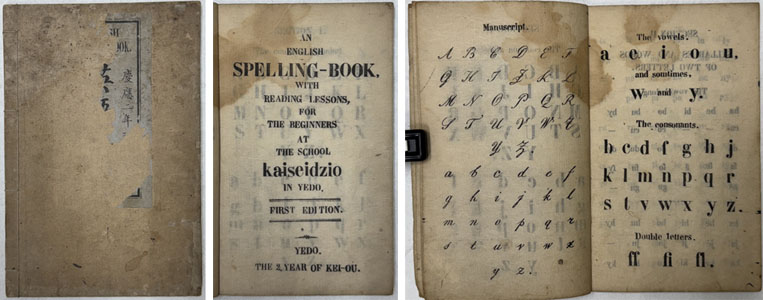 OOK.
慶應二年
AN
ENGLISH
SPELLING-BOOK.
WITH
READING LESSONS,
FOR
THE BEGINNERS
AT
THE SCHOOL
kaiseidzio
IN YEDO.
FIRST EDITION.
YEDO.
THE 2, YEAR OF KEI-OU.
Manuscript.
A B C D E F
G H I J K L
M N O P Q R
S T U V W X
Y Z.
a b c d e f
g h i j k l
m n o p q r
s t u v w x
y z.
The vowels.
a e i o u.
and somtimes,
w and y.
The consonants.
b c d f g h j
k l m n p q r
s t v w x y z.
Double letters.
ff fi fl.